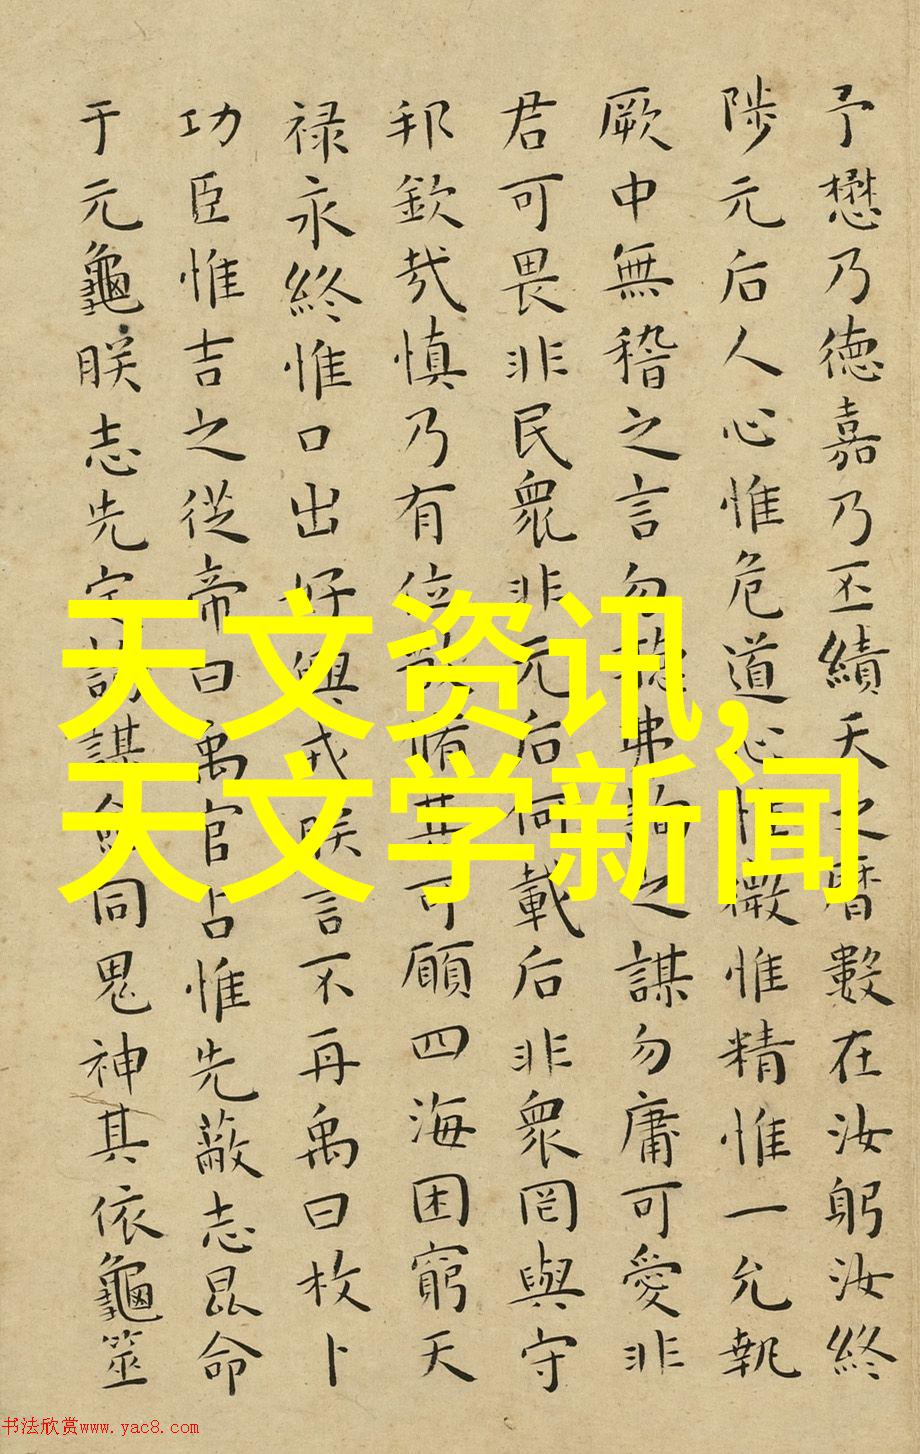 予懋乃德嘉乃丕績天之曆數在汝躬汝終
陟元后人心惟危道心惟微惟精惟一允執
厥中無稽之言勿聽弗詢之謀勿庸可愛非
君可畏非民衆非元后何載后非衆罔與守
邦欽哉慎乃有位敬脩其可願四海困窮天
禄永終惟口出好興戎朕言不再禹曰枚卜
功臣惟吉之從帝曰禹官占惟先蔽志昆命
于元龜朕志先定詢謀僉同鬼神其依龜筮
天文资讯,
天文学新闻
书法欣赏www.yac8.com